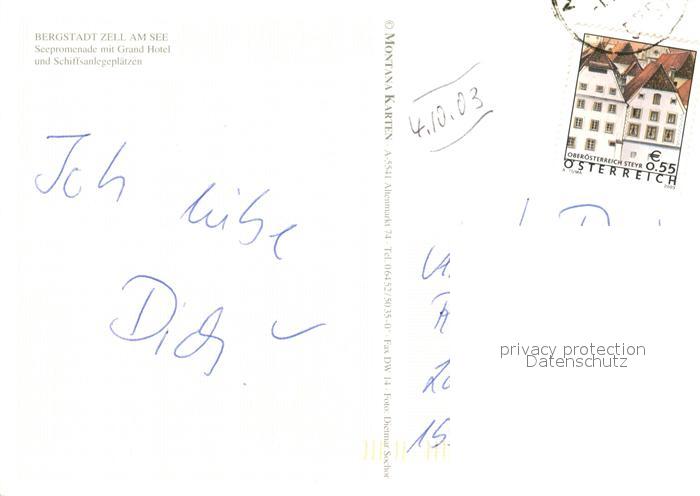 BERGSTADT ZELL AM SEE
Seepromenade mit Grand Hotel
und Schiffsanlegeplätzen
Ich liebe
Dich
© MONTANA KARTEN · A-5541 Altenmarkt 74 · Tel. 06452/5035-0 · Fax DW 14 · Foto: Dietmar Sochor
4.10.03
OBERÖSTERREICH STEYR
€ 0.55
A. TUMA
2003
ÖSTERREICH
15
privacy protection
Datenschutz